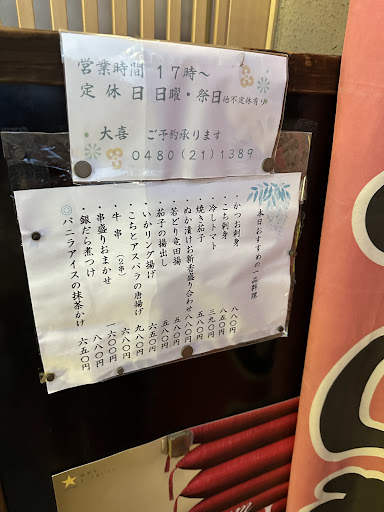 営業時間 17時〜
定 休 日 日曜・祭日他不定休有り
・大喜 ご予約承ります
0480(21)1389
本日おすすめの一品料理
・かつお刺身 八八〇円
・こち刺身 八五〇円
・冷しトマト 三九〇円
・焼き茄子 五八〇円
・ぬか漬けお新香盛り合わせ 八八〇円
・若どり竜田揚 五八〇円
・茄子の揚出し 五八〇円
・いかリング揚げ 六五〇円
・こちとアスパラの唐揚げ 九八〇円
・牛串 (2串) 六八〇円
・串盛りおまかせ 一六〇〇円
・銀だら煮つけ 八八〇円
◎バニラアイスの抹茶かけ 六五〇円